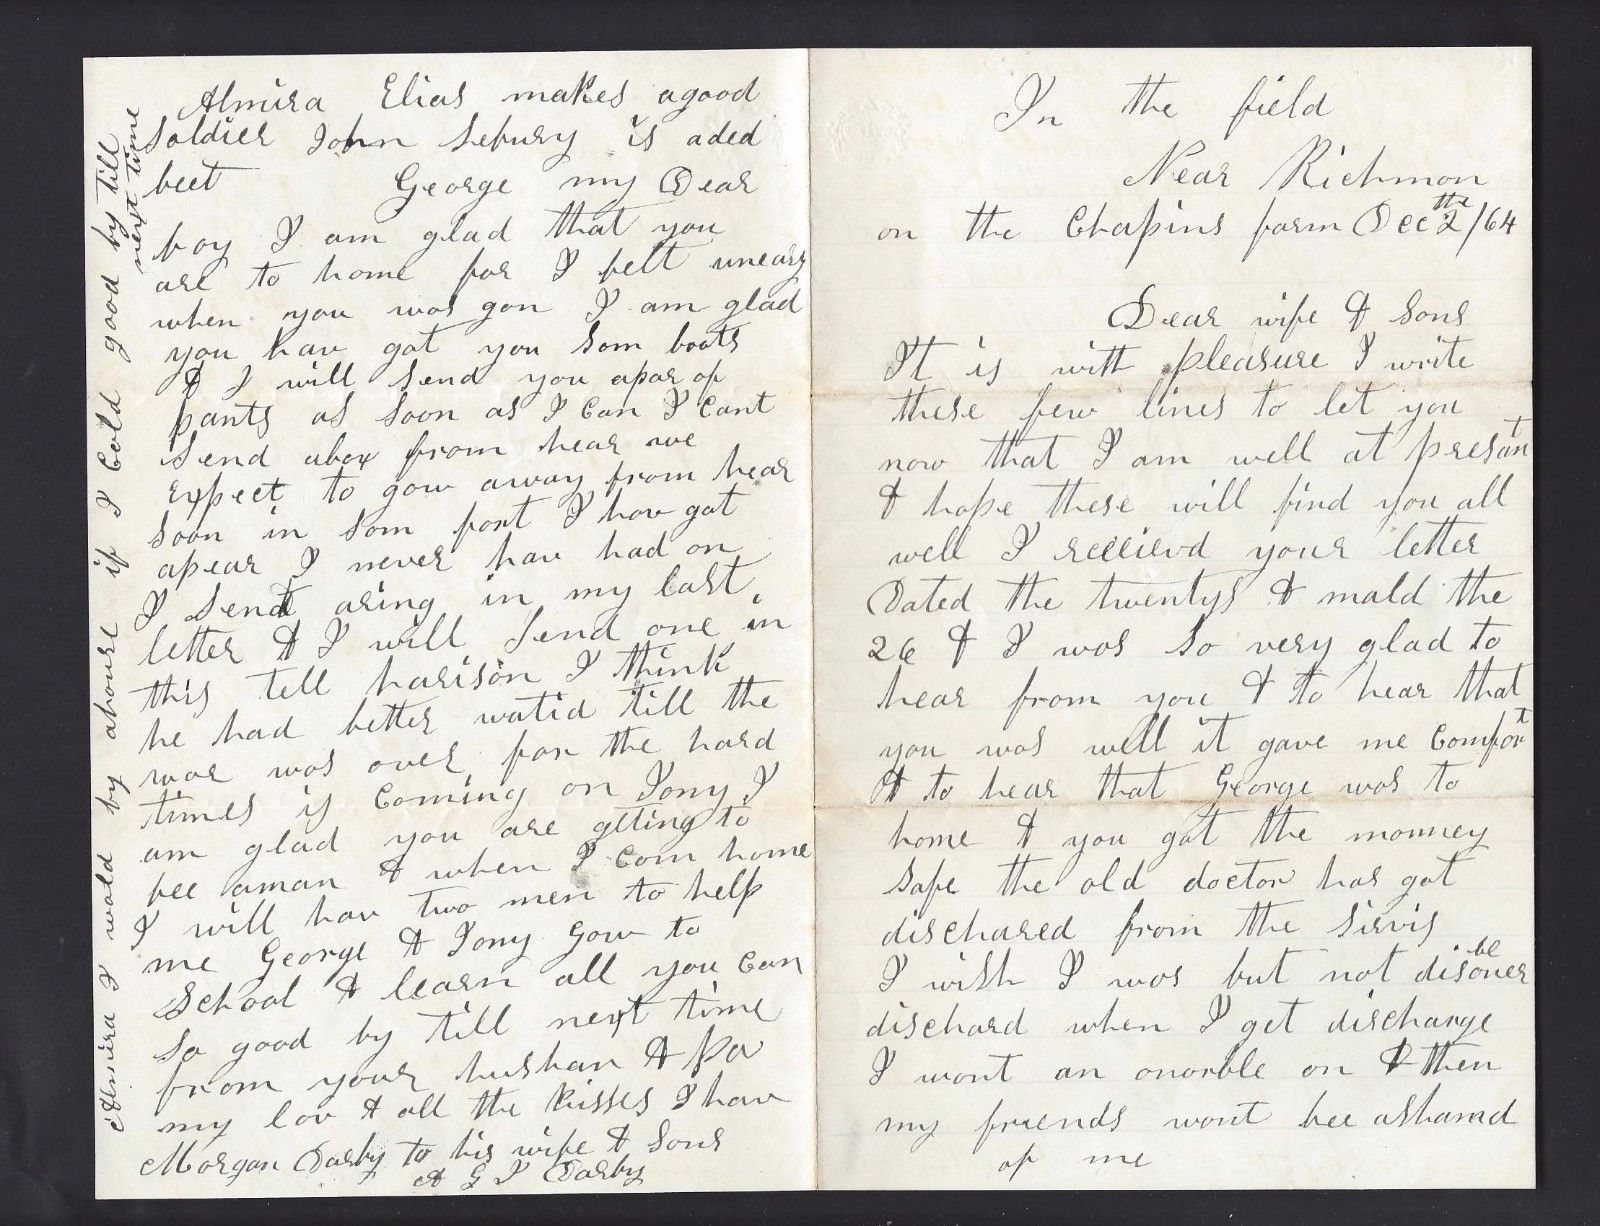 In the field
Near Richmon
on the Chapins farm Dec 2th/64
Dear wife & Sons
It is with pleasure I write
these few lines to let you
now that I am well at presant
& hope these will find you all
well I recieevd your letter
Dated the twentys & mald the
26 & I was so very glad to
hear from you & to hear that
you was well it gave me Comfort
& to hear that George was to
home & you got the monney
safe the old doctor has got
dischared from the sirvis
I wish I was but not disoner be
dischard when I get discharge
I wont an onorble on & then
my friends wont bee asharmd
of me
Almira Elias makes agood
Soldier John Sebury is aded
beet George my Dear
boy I am glad that you
are to home for I felt uneasy
when you was gon I am glad
you hav got you som boots
& I will send you apar of
pants as soon as I Can I Cant
Send abox from hear we
expect to gow away from hear
soon in som fort I hav got
apear I never hav had on
I Sendt aring in my last
letter & I will Send one in
this tell harison I think
he had better watid till the
war was over for the hard
times is Coming on Tony I
am glad you are gitting to
bee aman & when I Com home
I will hav two men to help
me George & Tony Gow to
School & learn all you Can
so good by till next time
from your husban & Pa
my lov & all the kisses I hav
Morgan Darby to his wife & Sons
A G T Darby
Almira I wold by ahouse if I Cold good by till
next time